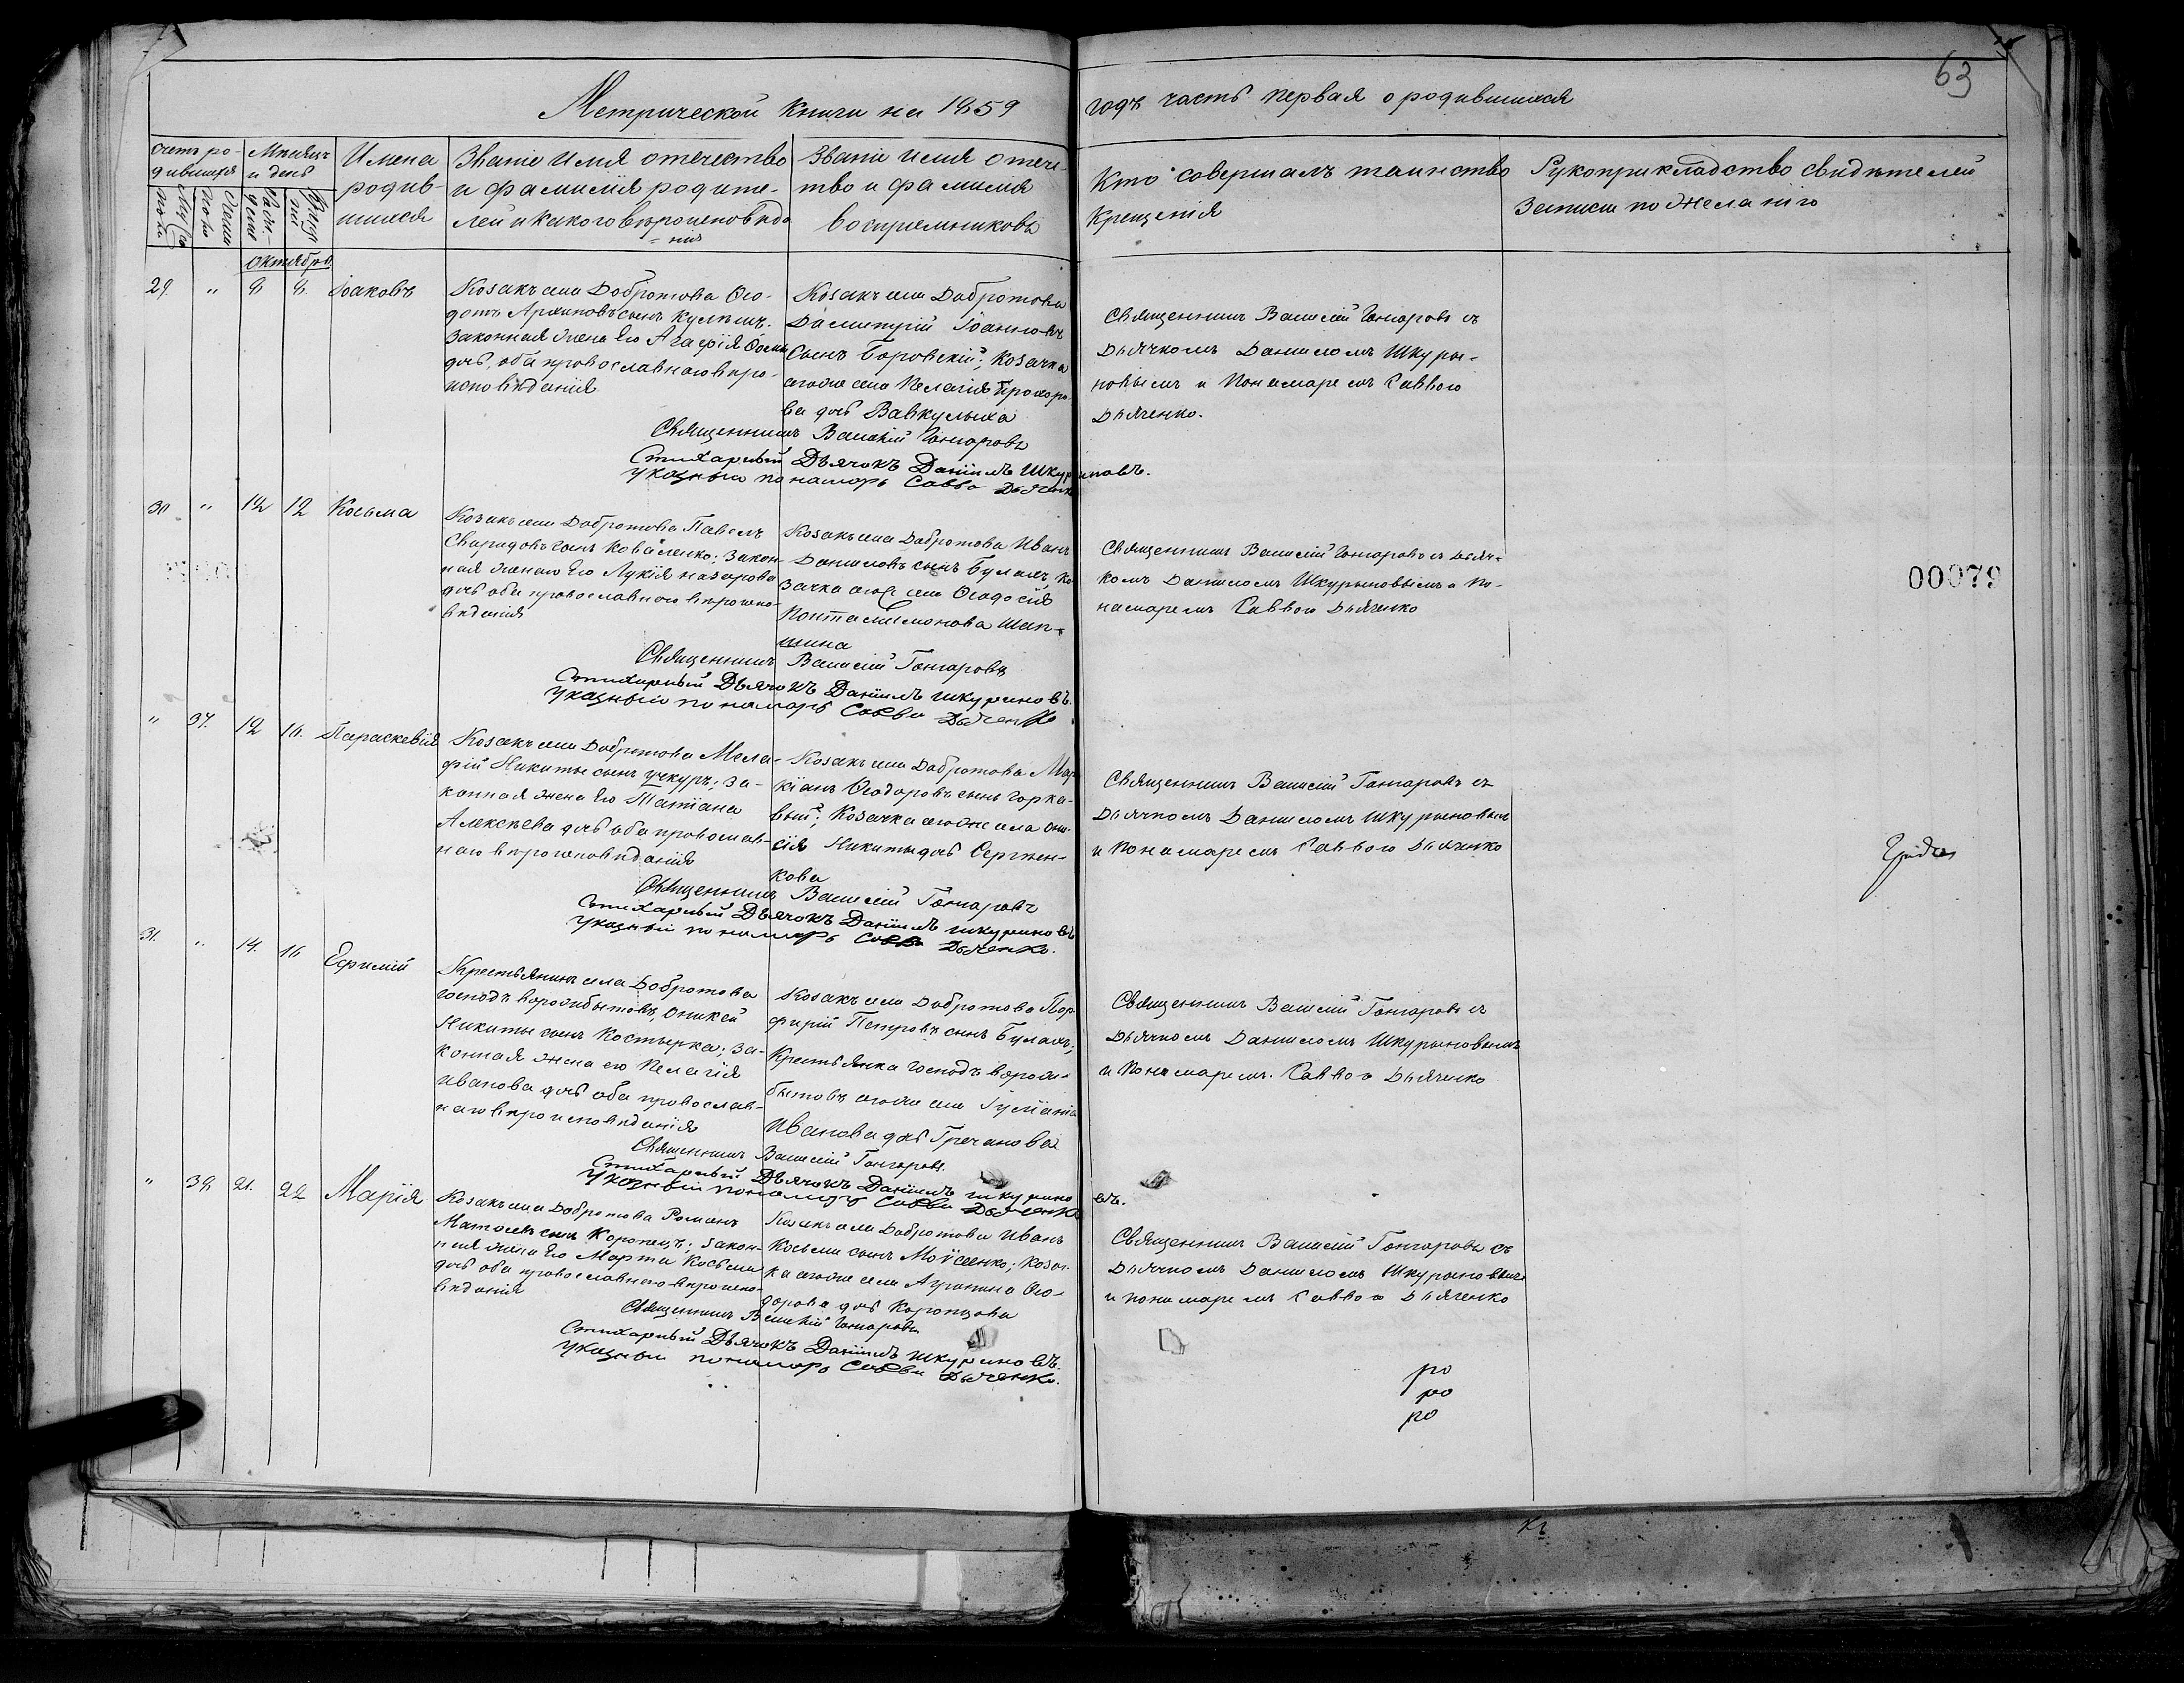 63
Метрической книги на 1859 годъ часть первая о родившихся
Счетъ ро-
дившихся
Мѣсяцъ
и день
Имена
родив-
шихся
Званіе Имя отечество
и фамилія родите-
лей и какого вѣроисповѣда
=нія
Званіе имя отече-
тво и фамилія
воспріемниковъ
Кто совершалъ таинство
Крещенія
Рукоприкладство свидѣтелей
Записи по желанію
Октябрь
29. " 9 9. Іаковъ
Козакъ села Добротова Ѳео-
дотъ Архиповъ сынъ
Законная жена Его Агафія
дчь, оба православнаго вѣро-
исповѣданія
Козакъ села Добротова
Димитрій Іоанновъ
Сынъ Боровскій; Козачка
тогоже села Пелагія Прохоро-
ва дчь Вавкулыха
Священникъ Василій Гончаровъ съ
Дьячкомъ Даниломъ Шкуры-
новымъ и Пономаремъ Саввою
Дьяченко.
Священникъ Василій Гончаровъ
Стихарный Дьячокъ Даніилъ Шкуриновъ.
указный пономарь Савва Дьяченко
30 " 12 12 Косьма
Козакъ села Добротова Павелъ
Свиридовъ сынъ Коваленко; Закон-
ная жена Его Лукія Назарова
дчь оба православнаго вѣроиспо-
вѣданія
Козакъ села Добротова Иванъ
Даниловъ сынъ Булахъ, Ко-
зачка тогоже села Ѳеодосія
Понтелимонова Шап-
шина
Священникъ Василій Гончаровъ съ Дьяч-
комъ Даниломъ Шкурыновымъ и По-
номаремъ Саввою Дьяченко
00079
Священникъ Василій Гончаровъ
Стихарный Дьячокъ Даніилъ Шкуриновъ.
Указный пономарь Савва Дьяченко
" 37. 12 16. Параскевія
Козакъ села Добротова Мела-
фій Никиты сынъ Учкуръ; за-
конная жена Его Татіана
Алексѣева дчь оба православ-
наго вѣроисповѣданія
Козакъ села Добротова Мар-
кіанъ Ѳеодоровъ сынъ Горка-
вый; Козачка тогоже села Они-
сія Никиты дчь Сержен-
кова
Священникъ Василій Гончаровъ съ
Дьячкомъ Даниломъ Шкурыновымъ
и Пономаремъ Саввою Дьяченко
Священникъ Василій Гончаровъ
Стихарный Дьячокъ Даніилъ Шкуриновъ
Указный пономарь Савва Дьяченко.
31. " 14. 16 Ефимій
Крестьянинъ села Добротова
Господъ Ворожбытовъ, Оникей
Никиты сынъ Костырка; за-
конная жена его Пелагія
Иванова дчь оба православ-
наго вѣроисповѣданія
Козакъ села Добротова Пор-
фирій Петровъ сынъ Булахъ;
Крестьянка Господъ Ворож-
бытовъ тогоже села Гуліанія
Иванова дчь Гречанова
Священникъ Василій Гончаровъ съ
Дьячкомъ Даниломъ Шкурыновымъ
и Пономаремъ Саввою Дьяченко
Священникъ Василій Гончаровъ.
Стихарный Дьячокъ Даніилъ Шкуриновъ.
Указный пономарь Савва Дьяченко
" 38. 21. 22 Марія
Козакъ села Добротова Романъ
сынъ Коропецъ; Закон-
ная жена Его Марта Косьмы
дчь оба православнаго вѣроиспо-
вѣданія
Козакъ села Добротова Иванъ
Косьмы сынъ Моусеенко; Козач-
ка тогоже села Агрипина Ѳео-
дорова дчь Коропцова
Священникъ Василій Гончаровъ съ
Дьячкомъ Даниломъ Шкурыновымъ
и пономаремъ Саввою Дьяченко
Священникъ Василій Гончаровъ
Стихарный Дьячокъ Даніилъ Шкуриновъ.
Указный пономарь Савва Дьяченко.
ро
ро
ро